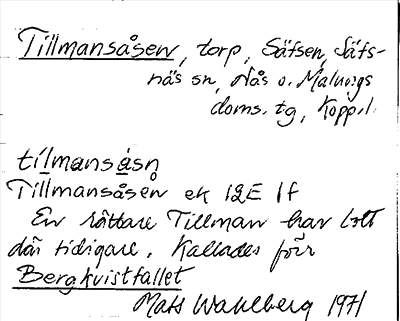 Tillmansåsen, torp, Säfsen, Säfs-
näs sn, Nås o. Malungs
doms. tg, Kopp.l.
tilmansåsn
Tillmansåsen ek 12E 1f
En råttare Tillman har bott
där tidigare. Kallades förr
Bergkvistfallet
Mats Wahlberg 1971